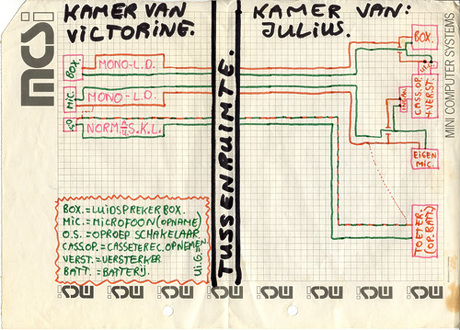 mcsi
KAMER VAN
VICTORING.
KAMER VAN:
JULIUS.
TUSSENRUIMTE.
MINI COMPUTER SYSTEMS
BOX.
MONO-L.D.
MIC.
MONO-L.D.
NORM.A.S.K.L.
BOX.
CASS.OP.
+VERST.
EIGEN
MIC.
TOETER.
(OP.BAT.)
BOX.=LUIDSPREKER BOX.
MIC.=MICROFOON(OPNAME)
O.S.=OPROEP SCHAKELAAR
CASS.OP.=CASSETEREC.OPNEMEN
VERST.=VERSTERKER
BATT.=BATTERIJ.